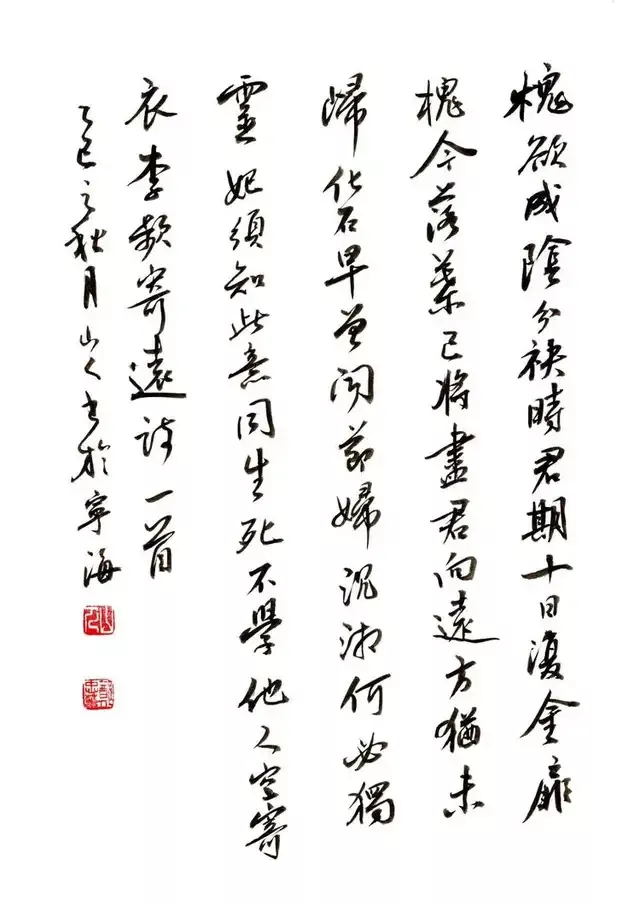 槐欲成陰分袂時君期十日復金扉
槐今落葉已將盡君向遠方猶未
歸化石早曾聞節婦沉湘何必獨
靈妃須知此意同生死不學他人空寄
衣李頻寄遠詩一首
乙巳之秋月山人書於寧海